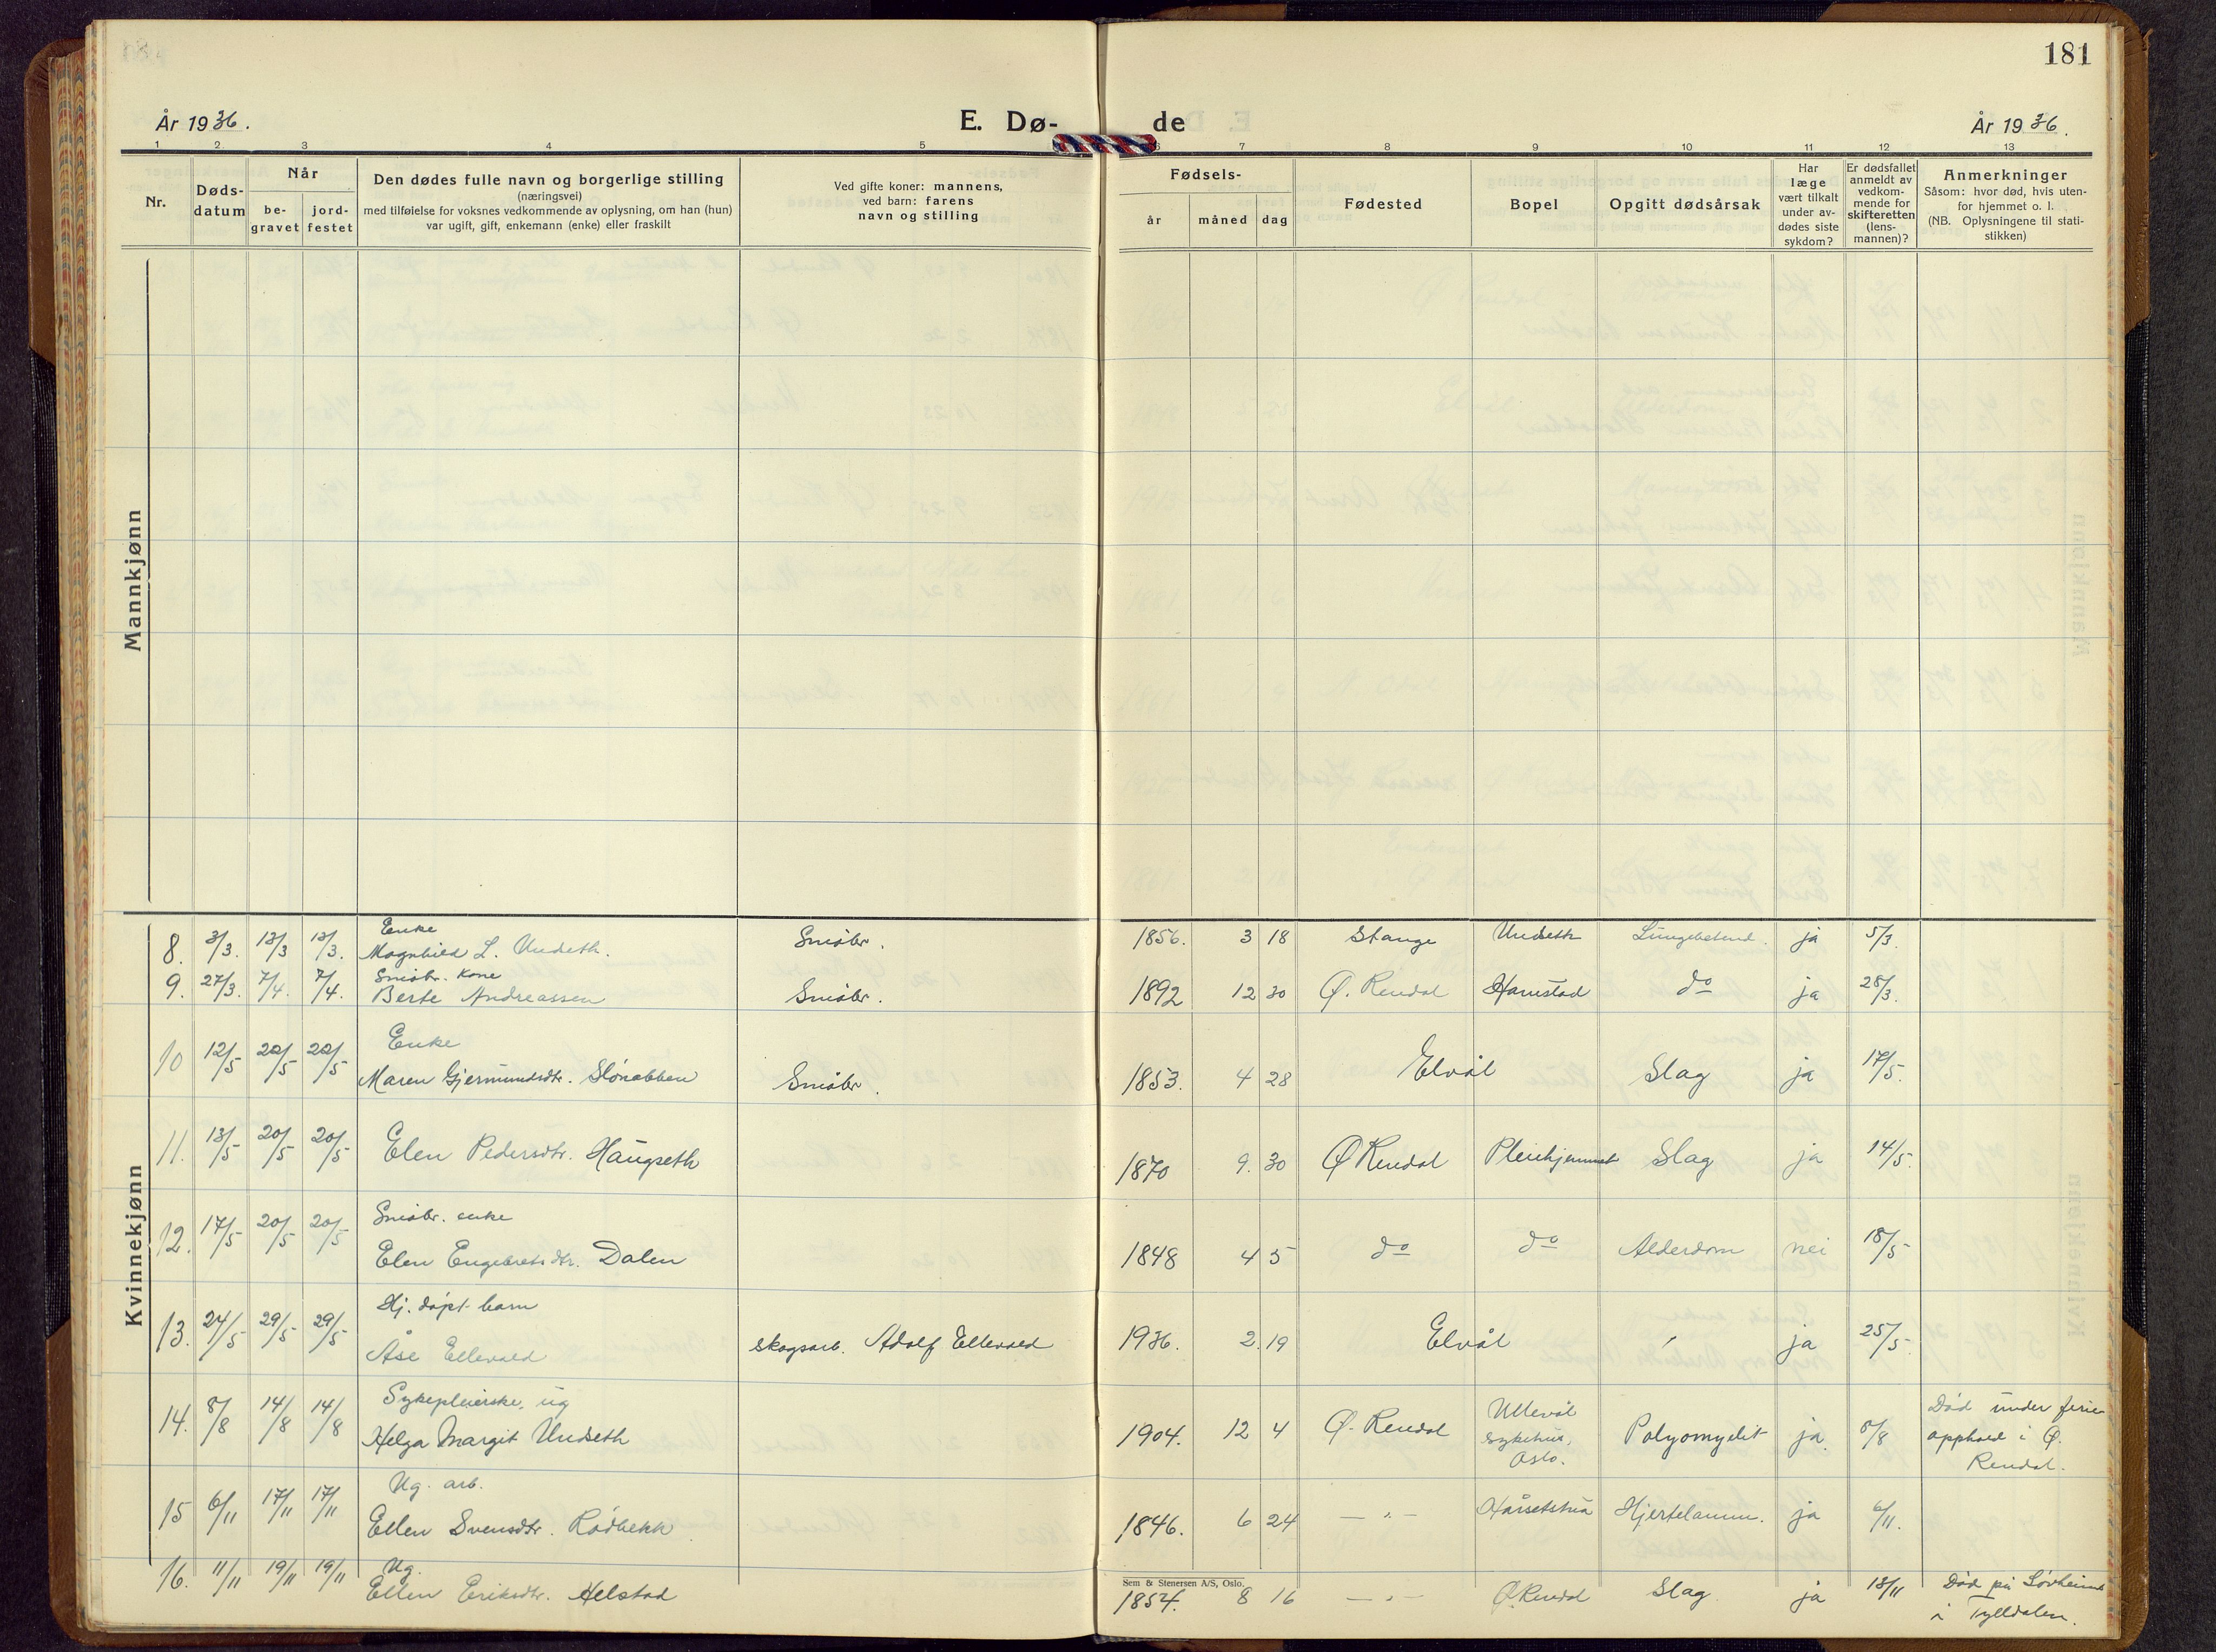 181
År 1936.
E. Dø-
de
År 1936.
1 2 3 4 5 6 7 8 9 10 11 12 13
Nr.
Døds-
datum
Når
be-
gravet
jord-
festet
Den dødes fulle navn og borgerlige stilling
(næringsvei)
med tilføielse for voksnes vedkommende av oplysning, om han (hun)
var ugift, gift, enkemann (enke) eller fraskilt
Ved gifte koner: mannens,
ved barn: farens
navn og stilling
Fødsels-
år måned dag
Fødested
Bopel
Opgitt dødsårsak
Har
læge
vært tilkalt
under av-
dødes siste
sykdom?
Er dødsfallet
anmeldt av
vedkom-
mende for
skifteretten
(lens-
mannen)?
Anmerkninger
Såsom: hvor død, hvis uten-
for hjemmet o. l.
(NB. Oplysningene til stati-
stikken)
Mannkjønn
Kvinnekjønn
Enke
8. 3/3. 13/3 13/3. Magnhild L. Undseth. Småbr. 1856. 3 18 Stange Undseth Lungebetend. ja 5/3.
Småbr. kone
9. 27/3. 7/4. 7/4. Berte Andreassen Småbr. 1892 12 30 Ø. Rendal Hanestad do ja 28/3.
Enke
10 12/5 22/5 22/5 Maren Gjermundsdtr. Slønabben Småbr. 1853. 4 28 Elvål Slag ja 17/5.
11. 13/5 20/5 20/5 Elen Pedersdtr. Haugseth 1870 9. 30 Ø Rendal Pleiehjemmet Slag ja 14/5.
Småbr. enke
12. 17/5 20/5 20/5 Elen Engebretsdtr. Dalen 1848 4 5 do do Alderdom nei 18/5
Hj. døpt barn
13. 24/5 29/5 29/5 Åse Ellevold skogsarb. Adolf Ellevold 1936. 2. 19 Elvål ja 25/5.
Sykepleierske, ug
14. 8/8 14/8 14/8 Helga Margit Undseth 1904. 12 4 Ø. Rendal Ullevål
sykehus,
Oslo.
Polyomyelit ja. 8/8 Død under ferie-
opphold i Ø.
Rendal.
Ug. arb.
15 6/11 17/11 17/11 Ellen Svensdtr. Rødbekk 1846. 6 24 — " — Hårsetstua Hjertelamm. ja 6/11.
Ug.
16. 11/11 19/11 19/11 Ellen Eriksdtr. Helstad 1854. 8 16 — " — Ø Rendal Slag ja 13/11 Død på Løvheim
i Tylldalen.
Sem & Stenersen A/S, Oslo.